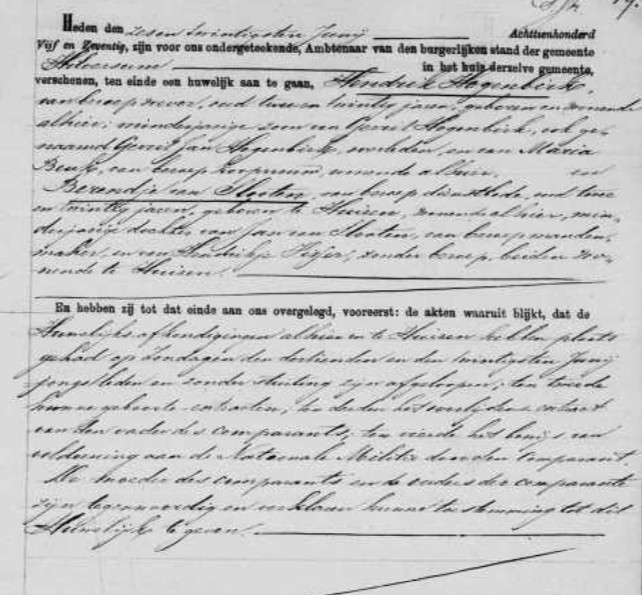 Heden den zesen twintigsten Junij Achttienhonderd
Vijf en Zeventig, zijn voor ons ondergeteekende, Ambtenaar van den burgerlijken stand der gemeente
Hilversum in het huis derzelve gemeente,
verschenen, ten einde een huwelijk aan te gaan, Hendrik Hogenbirk,
van beroep wever, oud twee en twintig jaren, geboren en wonende
alhier; minderjarige zoon van Gerrit Hogenbirk, ook ge-
naamd Gerrit Jan Hogenbirk, overleden, en van Maria
van beroep koopvrouw, wonende alhier, en
Berendje van Slooten, van beroep dienstbode, oud twee
en twintig jaren, geboren te Huizen, wonende alhier, min-
derjarige dochter van Jan van Slooten, van beroep manden-
maker, en van zonder beroep, beiden wo-
nende te Huizen.
En hebben zij tot dat einde aan ons overgelegd, vooreerst: de akten waaruit blijkt, dat de
Huwelijks afkondigingen alhier en te Huizen hebben plaats
gehad op Zondagen den dertienden en den twintigsten Junij
jongstleden en zonder stuiting zijn afgeloopen; ten tweede
hunne geboorte-extracten; ten derden het overlijdens extract
van den vader des comparants; ten vierde het bewijs van
voldoening aan de Nationale Militie door den Comparant.
De moeder des comparants en de ouders der comparante
zijn tegenwoordig en verklaren hunne toestemming tot dit
Huwelijk te geven.